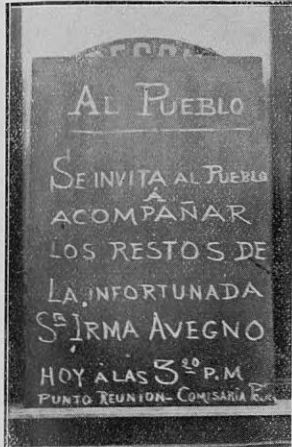 AL PUEBLO
SE INVITA AL PUEBLO
Á
ACOMPAÑAR
LOS RESTOS DE
LA INFORTUNADA
SRA IRMA AVEGNO
HOY A LAS 3 30 P.M
PUNTO REUNION - COMISARIA